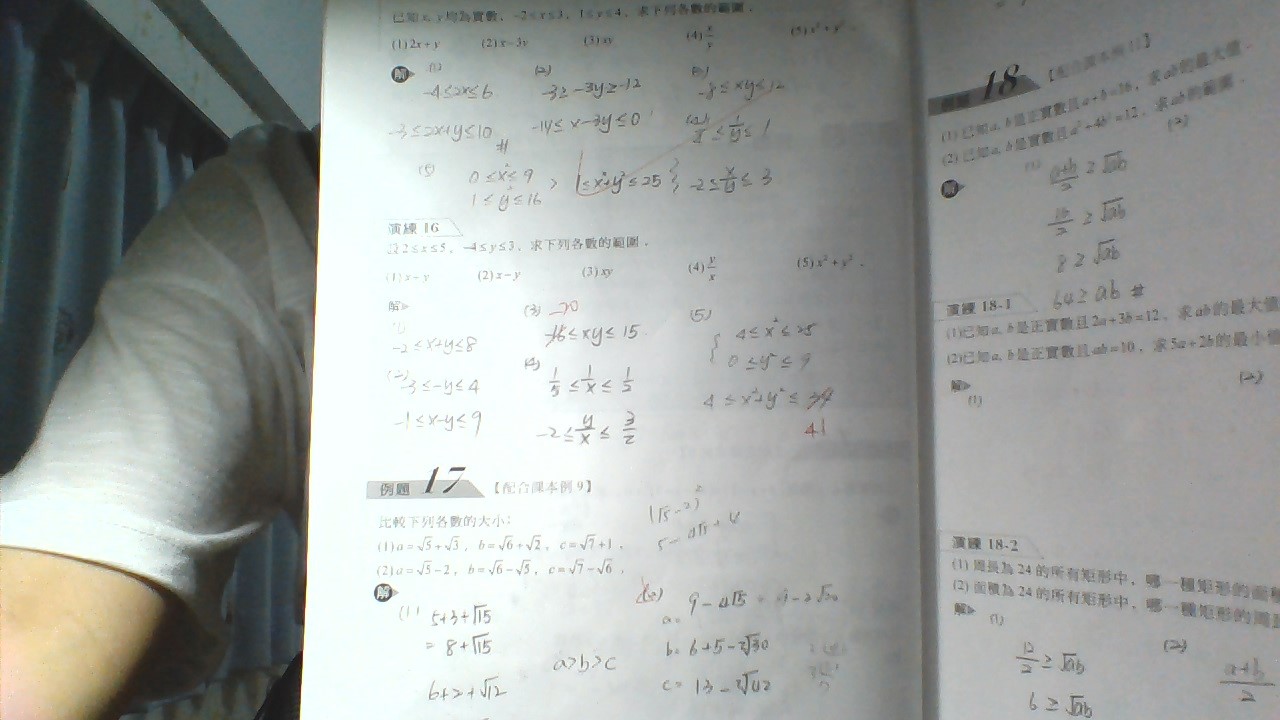 已知x, y均為實數，-2≤x≤3，1≤y≤4，求下列各數的範圍．
(1) 2x+y (2) x-3y (3) xy (4) x/y (5) x²+y²．
解 (1) (2) (3)
-4≤2x≤6 -3≥-3y≥-12 -8≤xy≤12
-3≤2x+y≤10 # -14≤x-3y≤0 (4) 1/4≤1/y≤1
(5) 0≤x²≤9
1≤y²≤16 > 1≤x²+y²≤25 -2≤x/y≤3
演練 16
設2≤x≤5，-4≤y≤3，求下列各數的範圍．
(2) x-y (3) xy (4) y/x (5) x²+y²．
解
(1) (3) -20 (5)
-2≤x+y≤8 ≤xy≤15 4≤x²≤25
(2) (4) 0≤y²≤9
-3≤-y≤4 1/5≤1/x≤1/2
-1≤x-y≤9 -2≤y/x≤3/2 4≤x²+y²≤34
41
例題 17 【配合課本例 9】
比較下列各數的大小：
(1) a=√5+√3，b=√6+√2，c=√7+1．
(2) a=√5-2，b=√6-√5，c=√7-√6．
(√5-2)²
5-4√5+4
解
(1) 5+3+√15
=8+√15
6+2+√12
a>b>c
(2)
a= 9-4√5
b= 6+5-2√30
c= 13-2√42
例題 18
(1) 已知a, b是正實數且a+b=16，求ab的最大值．
(2) 已知a, b是實數且a²+4b²=12，求ab的範圍．
解 (1) (2)
a+b/2≥√ab
16/2≥√ab
8≥√ab
64≥ab #
演練 18-1
(1)已知a, b是正實數且2a+3b=12，求ab的最大值
(2)已知a, b是正實數且ab=10，求5a+2b的最小值
解
(1) (2)
演練 18-2
(1) 周長為 24 的所有矩形中，哪一種矩形的面積
(2) 面積為 24 的所有矩形中，哪一種矩形的周
解
(1) (2)
12/2≥√ab a+b/2
6≥√ab